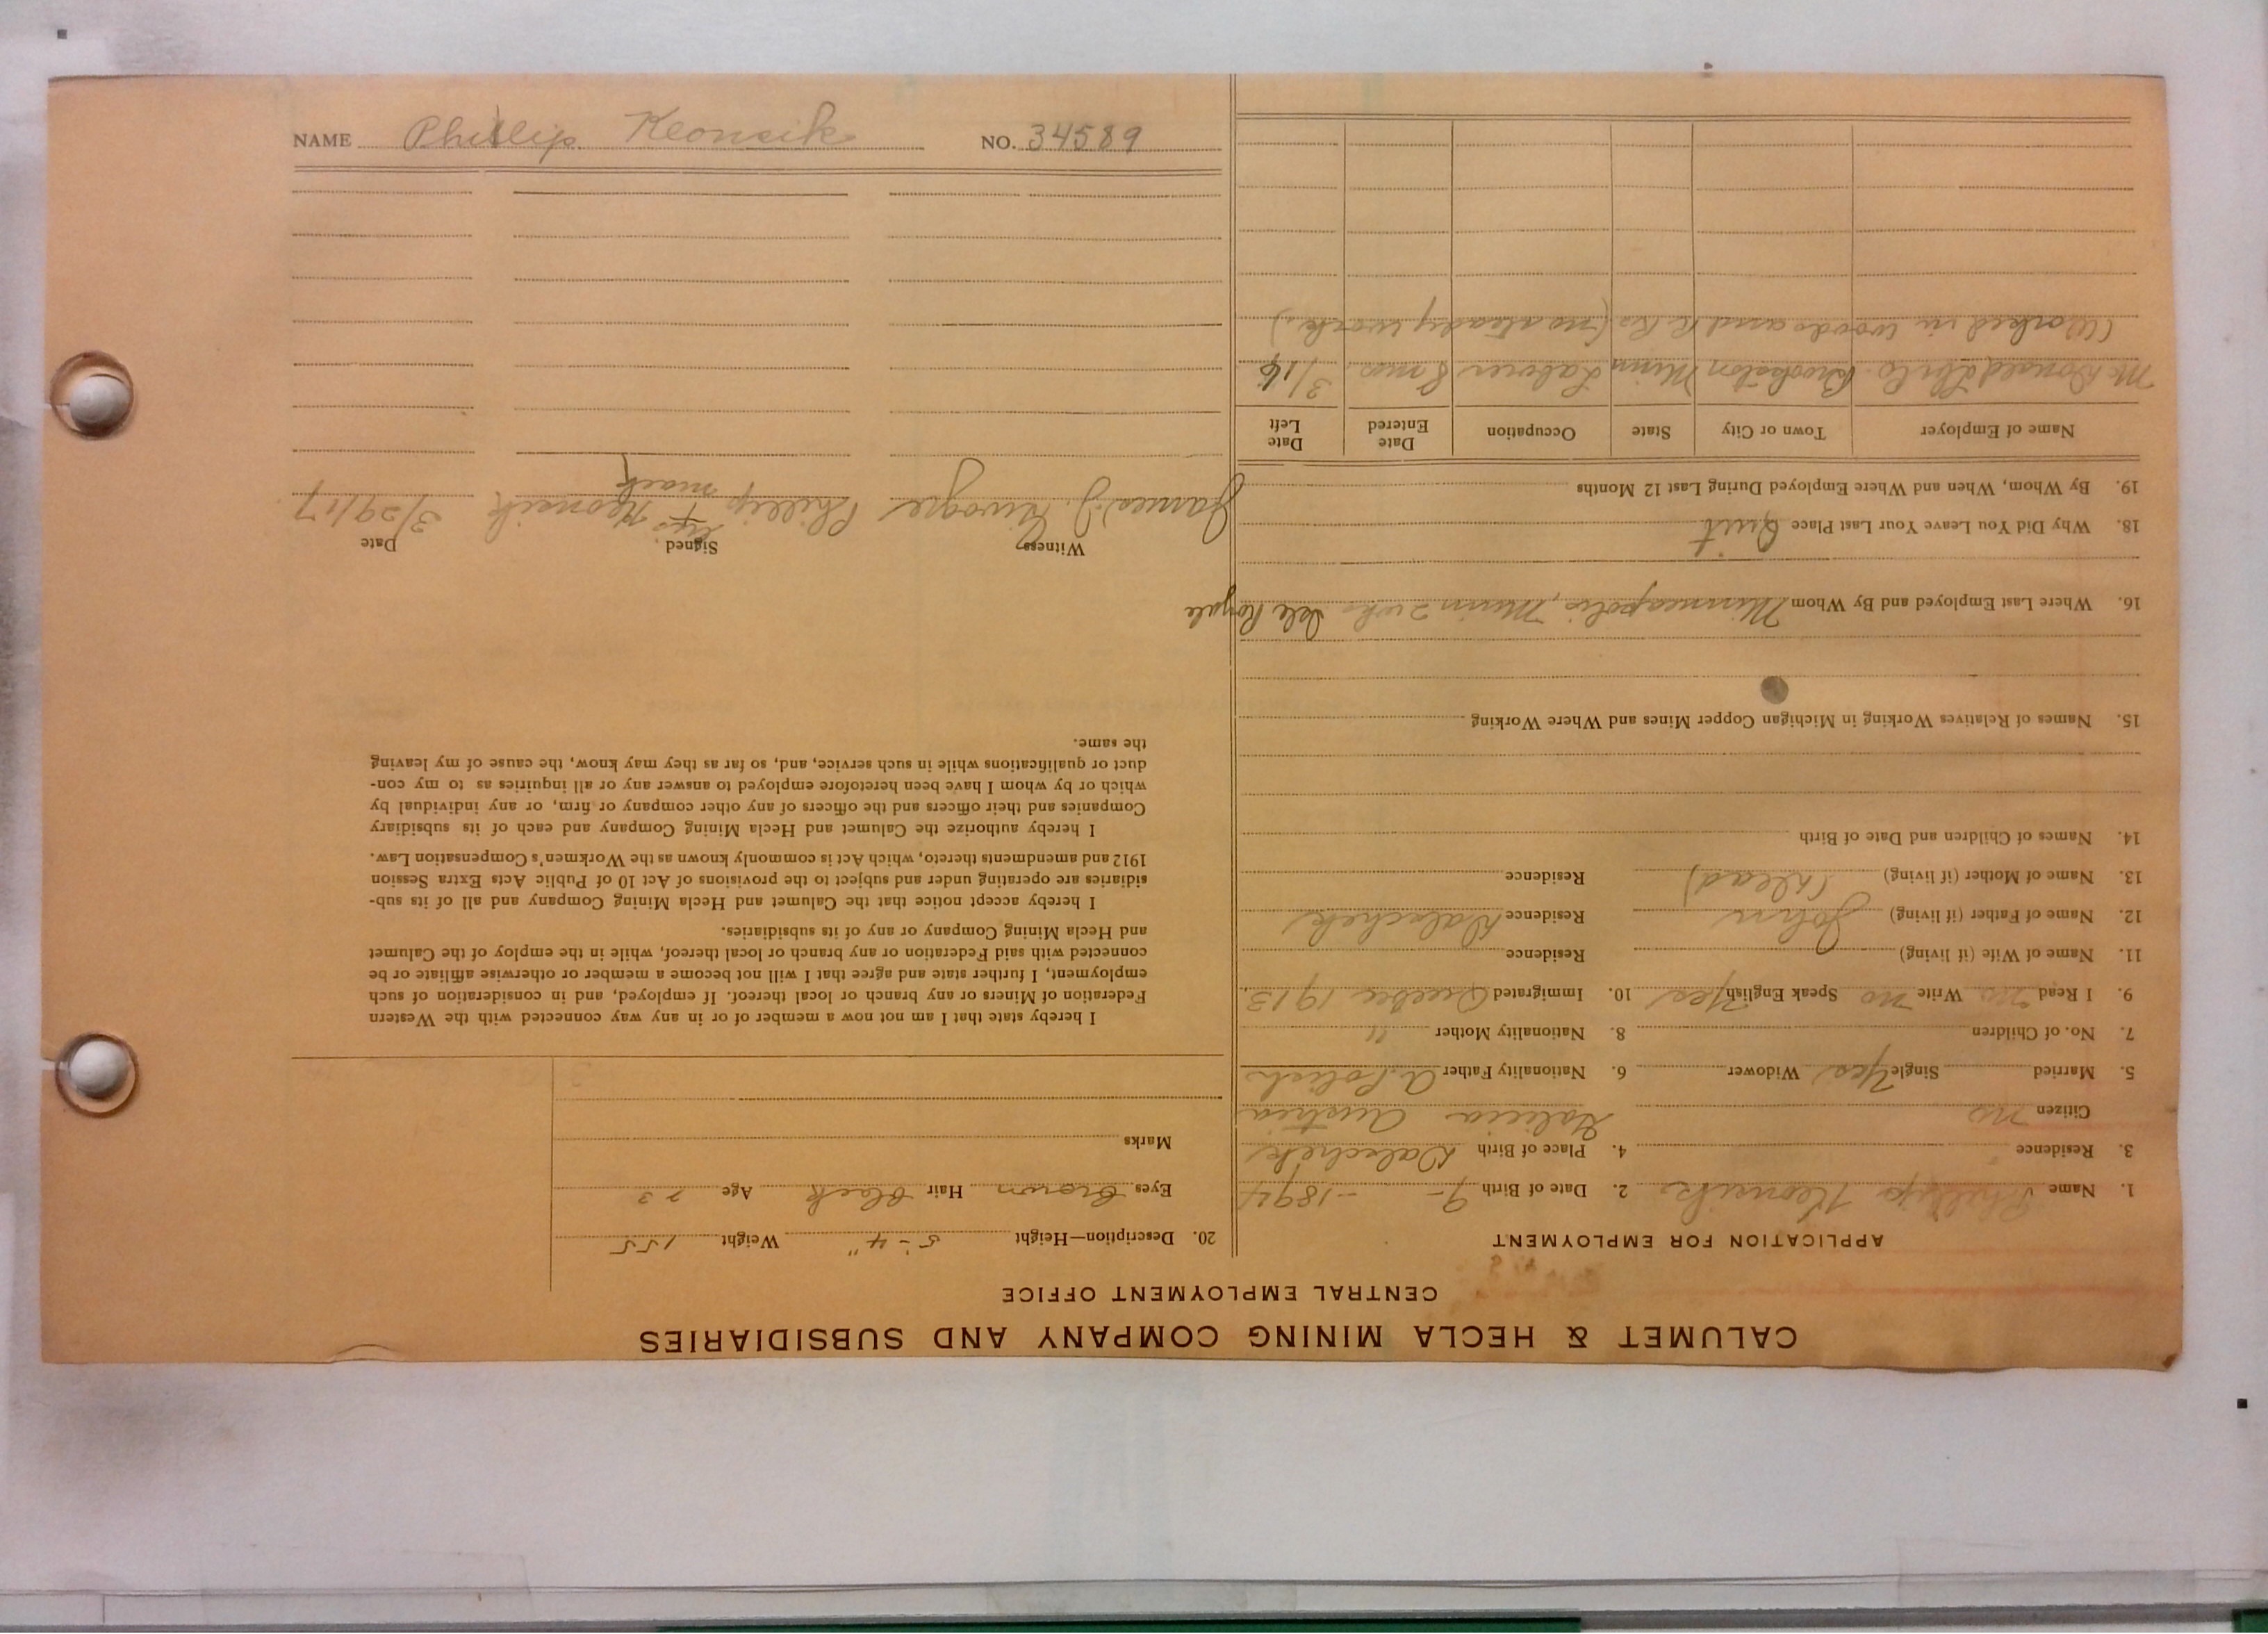 CALUMET & HECLA MINING COMPANY AND SUBSIDIARIES
CENTRAL EMPLOYMENT OFFICE
APPLICATION FOR EMPLOYMENT
1. Name Phillip Kleonsik 2. Date of Birth 9 - - 1894
3. Residence 4. Place of Birth
Citizen no Galicia Austria
5. Married Single Yes Widower 6. Nationality Father A. Polish
7. No. of Children 8. Nationality Mother "
9. I Read no Write no Speak English Yes 10. Immigrated Quebec 1913
11. Name of Wife (if living) Residence
12. Name of Father (if living) John Residence
13. Name of Mother (if living) (dead) Residence
14. Names of Children and Date of Birth
15. Names of Relatives Working in Michigan Copper Mines and Where Working
16. Where Last Employed and By Whom Minneapolis, Minn 2 wks Isle Royale
18. Why Did You Leave Your Last Place Quit
19. By Whom, When and Where Employed During Last 12 Months
Name of Employer Town or City State Occupation Date Entered Date Left
McDonald Brookston Minn Laborer 8 mos 3/16
(Worked in woods and R Rs (no steady work.)
20. Description—Height 5'-4" Weight 155
Eyes Brown Hair Black Age 23
Marks
I hereby state that I am not now a member of or in any way connected with the Western
Federation of Miners or any branch or local thereof. If employed, and in consideration of such
employment, I further state and agree that I will not become a member or otherwise affiliate or be
connected with said Federation or any branch or local thereof, while in the employ of the Calumet
and Hecla Mining Company or any of its subsidiaries.
I hereby accept notice that the Calumet and Hecla Mining Company and all of its sub-
sidiaries are operating under and subject to the provisions of Act 10 of Public Acts Extra Session
1912 and amendments thereto, which Act is commonly known as the Workmen's Compensation Law.
I hereby authorize the Calumet and Hecla Mining Company and each of its subsidiary
Companies and their officers and the officers of any other company or firm, or any individual by
which or by whom I have been heretofore employed to answer any or all inquiries as to my con-
duct or qualifications while in such service, and, so far as they may know, the cause of my leaving
the same.
Witness Signed Date
James J. his
Phillip x Kleonsik 3/29/17
mark
NAME Phillip Kleonsik NO. 34589